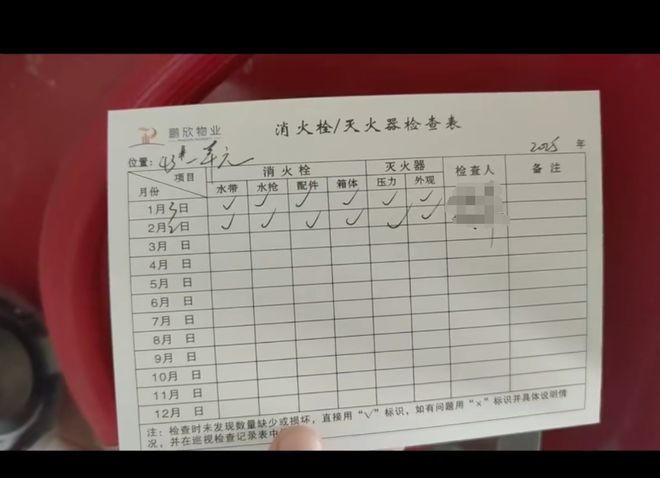 鹏欣物业
消火栓/灭火器检查表
位置：43# 一单元 2025 年
项目 消火栓 灭火器 检查人 备注
月份 水带 水枪 配件 箱体 压力 外观
1月3日 ✓ ✓ ✓ ✓ ✓ ✓
2月2日 ✓ ✓ ✓ ✓ ✓ ✓
3月 日
4月 日
5月 日
6月 日
7月 日
8月 日
9月 日
10月 日
11月 日
12月 日
注：检查时未发现数量缺少或损坏，直接用“√”标识，如有问题用“×”标识并具体说明情
况，并在巡视检查记录表中